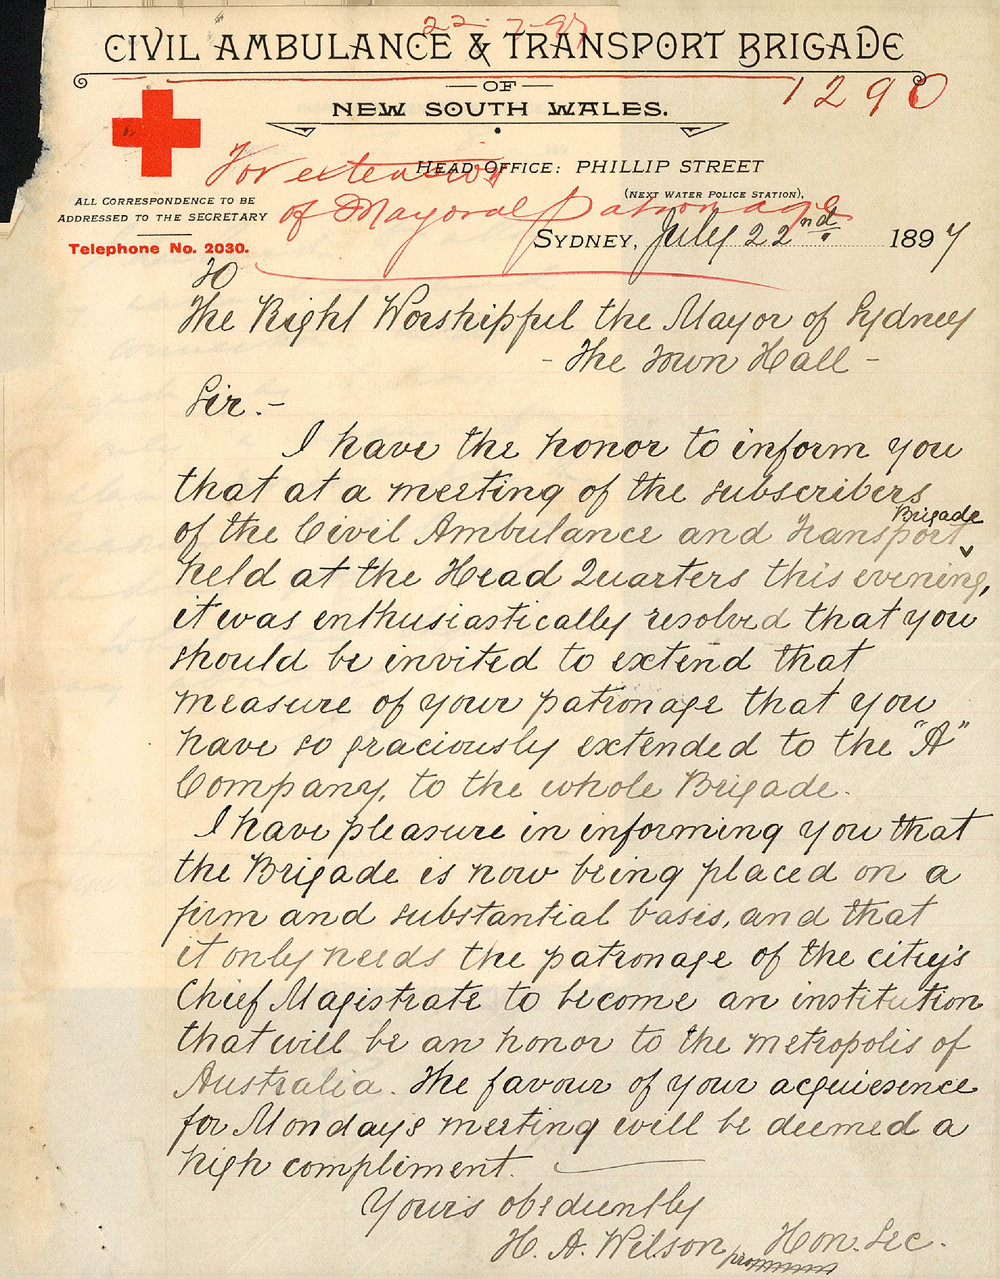 22-7-97
CIVIL AMBULANCE & TRANSPORT BRIGADE
1290
OF
NEW SOUTH WALES.
HEAD OFFICE: PHILLIP STREET
(NEXT WATER POLICE STATION),
For extension
of Mayoral Patronage
ALL CORRESPONDENCE TO BE
ADDRESSED TO THE SECRETARY
Telephone No. 2030.
SYDNEY, July 22nd. 1897
To
The Right Worshipful the Mayor of Sydney
- The Town Hall -
Sir.-
I have the honor to inform you
that at a meeting of the subscribers
of the Civil Ambulance and Transport Brigade
held at the Head Quarters this evening,
it was enthusiastically resolved that you
should be invited to extend that
measure of your patronage that you
have so graciously extended to the "A"
Company, to the whole Brigade.
I have pleasure in informing you that
the Brigade is now being placed on a
firm and substantial basis, and that
it only needs the patronage of the city's
Chief Magistrate to become an institution
that will be an honor to the metropolis of
Australia. The favour of your acquiesence
for Monday's meeting will be deemed a
high compliment.
Yours obediently
H. A. Wilson Hon. Sec.